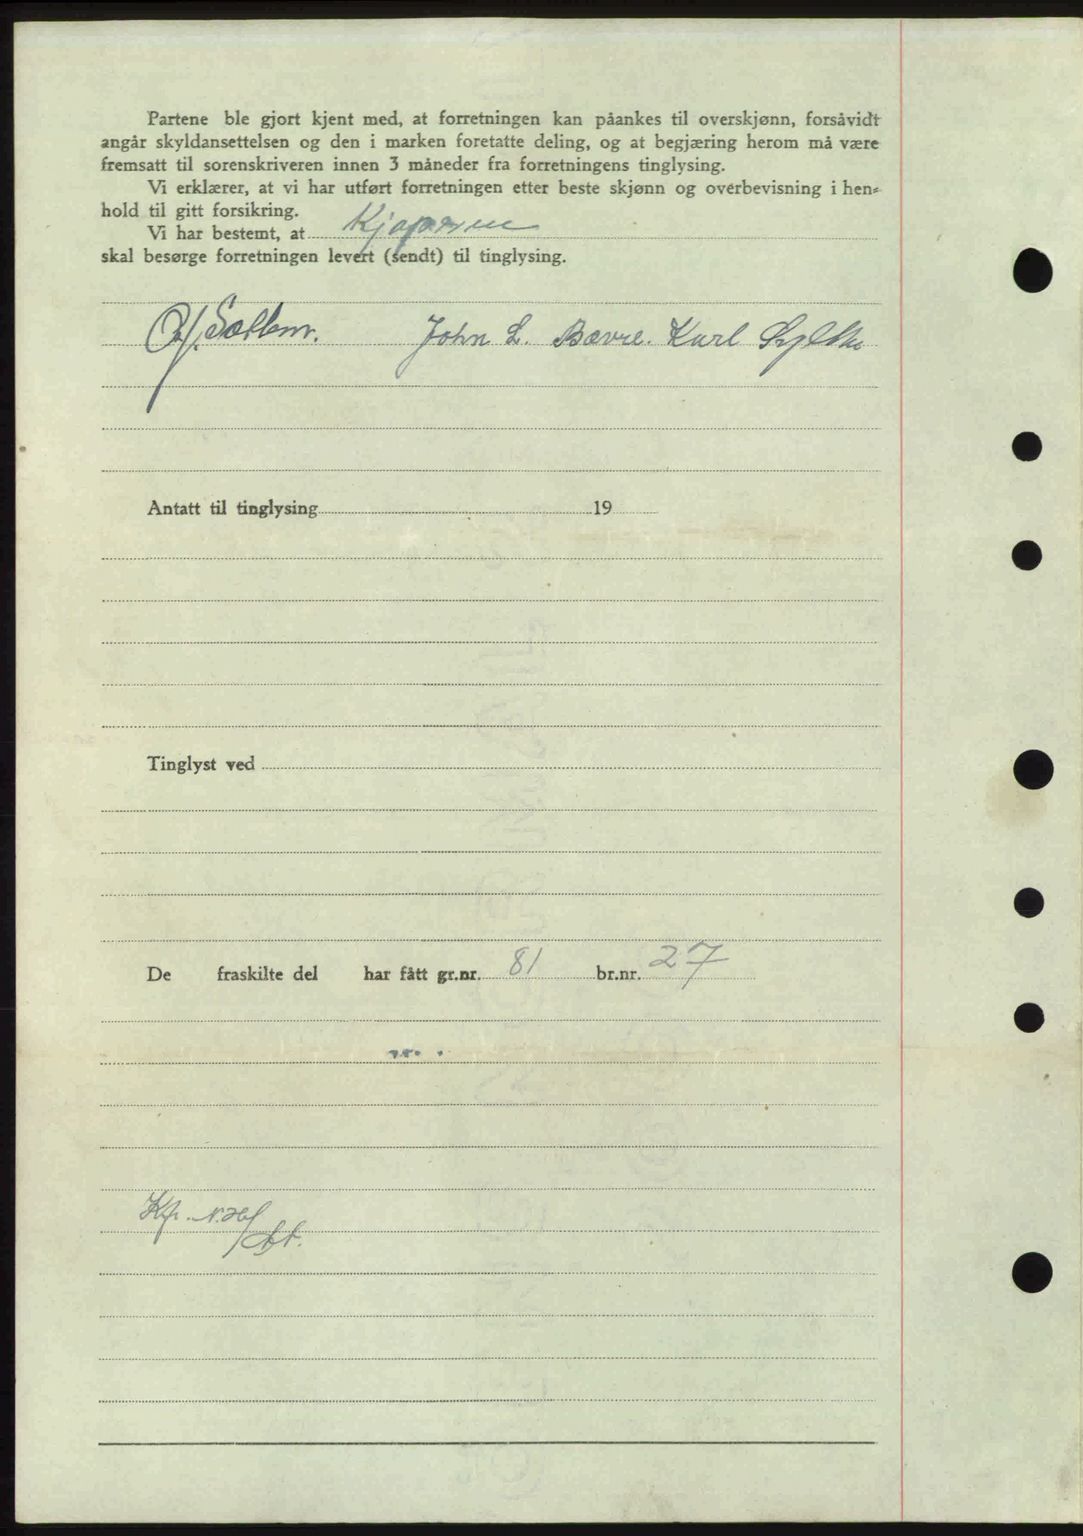 Partene ble gjort kjent med, at forretningen kan påankes til overskjønn, forsåvidt
angår skyldansettelsen og den i marken foretatte deling, og at begjæring herom må være
fremsatt til sorenskriveren innen 3 måneder fra forretningens tinglysing.
Vi erklærer, at vi har utført forretningen etter beste skjønn og overbevisning i hen-
hold til gitt forsikring.
Vi har bestemt, at Kjøperne
skal besørge forretningen levert (sendt) til tinglysing.
John L. Bævre. Karl
Antatt til tinglysing 19
Tinglyst ved
De fraskilte del har fått gr.nr. 81 br.nr. 27